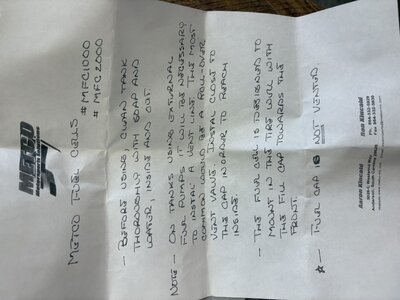 METCO
METCO FUEL CELLS #MFC1000
# MFC 2000
— BEFORE USING, CLEAN TANK
THOROUGHLY WITH SOAP AND
WATER, INSIDE AND OUT.
NOTE — ON TANKS USING EXTERNAL
FUEL PUMPS IT WILL BE NECESSARY
TO INSTAL A VENT LINE. THE MOST
COMMON WOULD BE A ROLL-OVER
VENT VALVE. INSTAL CLOSE TO
THE CAP IN ORDER TO REACH
INSIDE.
— THE FUEL CELL IS DESIGNED TO
MOUNT IN THE TIRE WELL WITH
THE FILL CAP TOWARDS THE
FRONT.
☆ — FUEL CAP IS NOT VENTED.
Aaron Kincaid
Anderson, South Carolina
Ron Kincaid
Ph
Fax